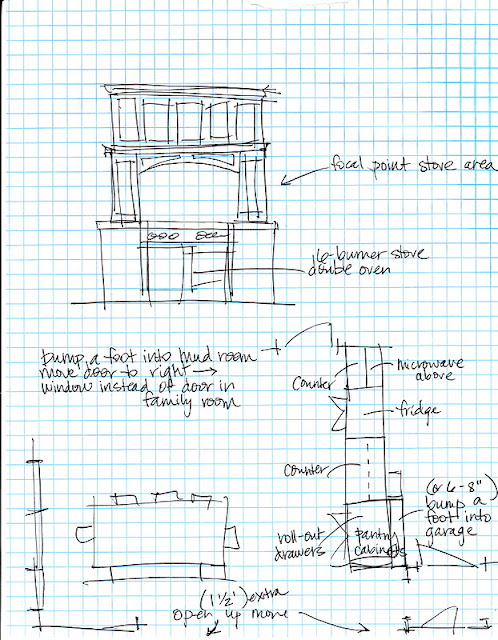 focal point stove area
6-burner stove
double oven
bump a foot into mud room
move door to right →
window instead of door in
family room
counter
microwave
above
fridge
counter
(or 6-8"
bump a
foot into
garage
roll-out
drawers
pantry
cabinets
(1 1/2') extra
open up more